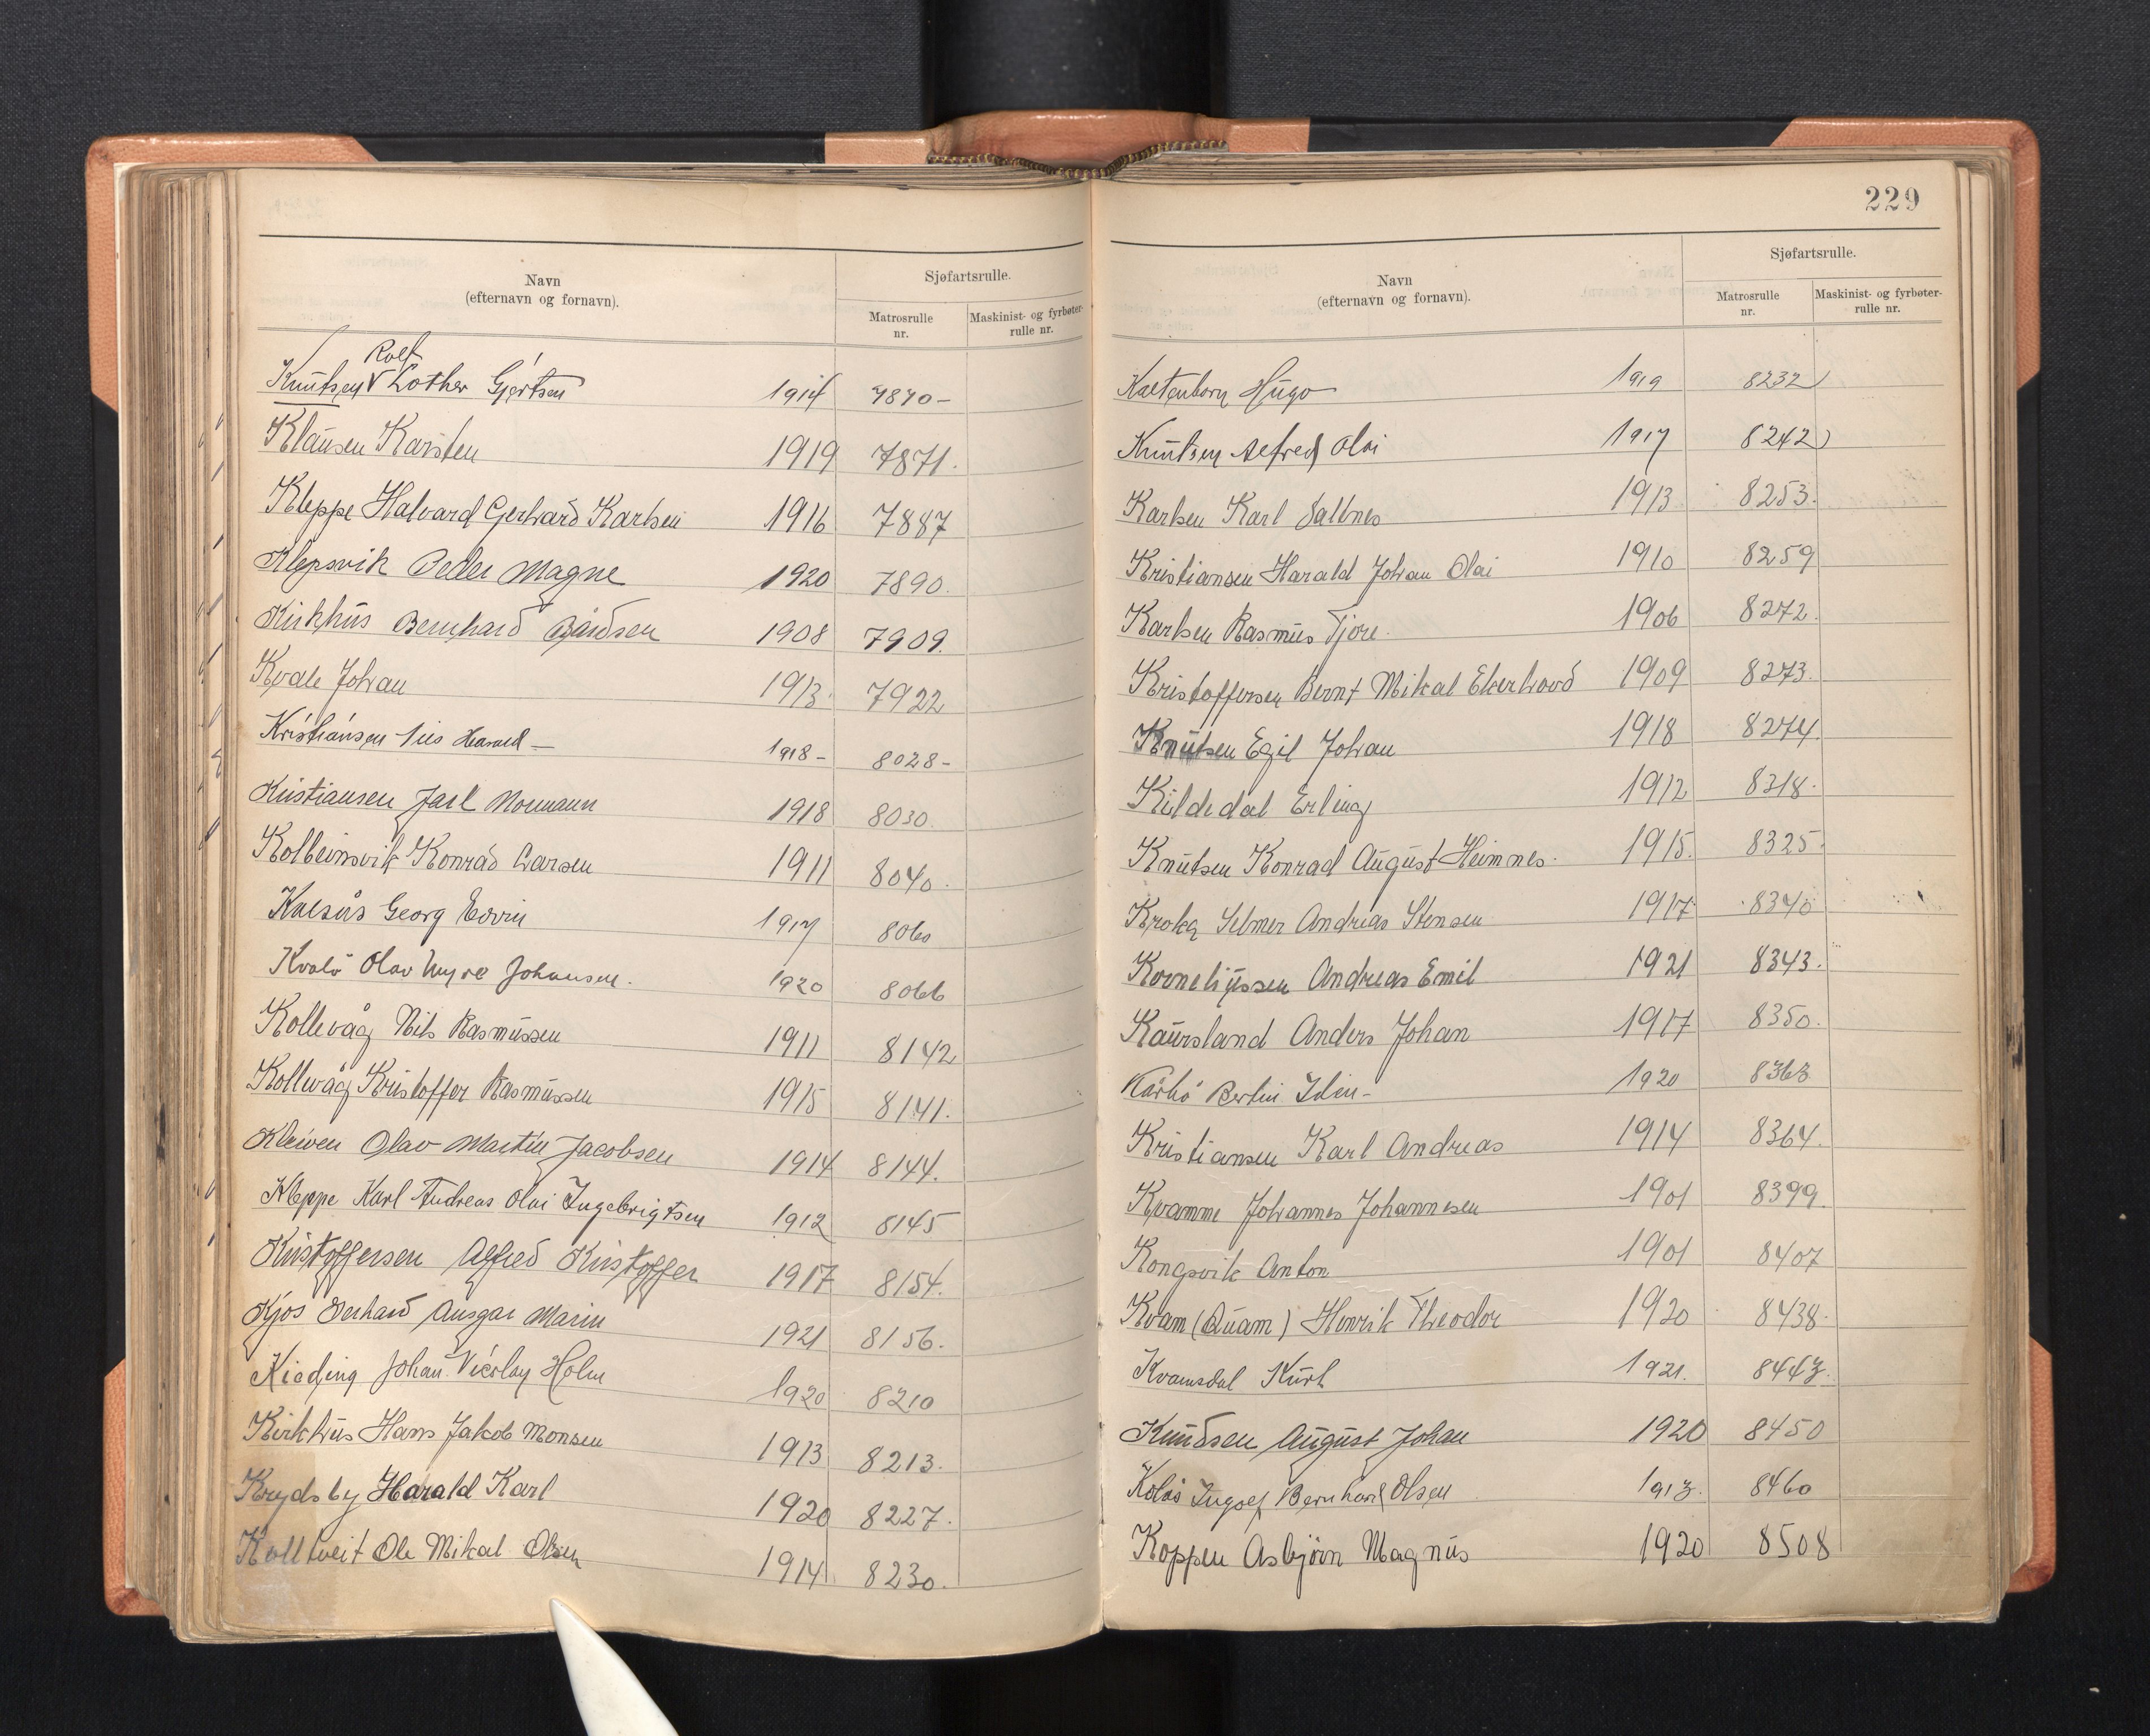 229
Navn
(efternavn og fornavn).
Sjøfartsrulle.
Matrosrulle
nr.
Maskinist- og fyrbøter-
rulle nr.
Rolf
Knutsen V Lother Gjertsen 1914 7870-
Klausen Karsten 1919 7871.
Kleppe Halvard Gerhard Karlsen 1916 7887
Klepsvik Peder Magne 1920 7890.
Kirkhus Bernhard Bårdsen 1908 7909.
Kvale Johan 1913. 7922
Kristiansen Nils Harald - 1918- 8028-
Kristiansen Jarl Normann 1918 8030.
Kolbeinsvik Konrad Larsen 1911 8040.
Kalsås Georg Edvin 1917 8060
Kvalø Olav Myre Johansen. 1920 8066
Kollevåg Nils Rasmussen 1911 8142
Kollevåg Kristoffer Rasmussen 1915 8141.
Kleiven Olav Martin Jacobsen 1914 8144.
Kleppe Karl Andreas Olai Ingebrigtsen 1912 8145
Kristoffersen Alfred Kristoffer 1917 8154.
Kjos Gerhard Ansgar Marin 1921 8156.
Kieding Johan Nicolay Holm 1920 8210
Kirkhus Hans Jakob Monsen 1913 8213.
Krydsby Harald Karl 1920 8227.
Koltveit Ole Mikal Olsen 1914 8230.
Navn
(efternavn og fornavn).
Sjøfartsrulle.
Matrosrulle
nr.
Maskinist- og fyrbøter-
rulle nr.
Kaltenborn Hugo 1919 8232)
Knutsen Alfred Olai 1917 8242)
Karlsen Karl Salbnes 1913. 8253.
Kristiansen Harald Johan Olai 1910 8259
Karlsen Rasmus Tjore. 1906 8272.
Kristoffersen Bernt Mikal Ekerhovd 1909 8273.
Knutsen Egil Johan 1918 8274.
Kildedal Erling 1912 8318.
Knutsen Konrad August Heimnes. 1915. 8325.
Krokø Selmer Andreas Stensen 1917 8340
Korneliussen Andreas Emil 1921 8343.
Kaursland Anders Johan 1917 8350.
Kårbø Bertin Idin- 1920 8363
Kristiansen Karl Andreas 1914 8364.
Kvamme Johannes Johannesen 1901 8399.
Kongsvik Anton 1901 8407
Kvam (Quam) Henrik Theodor 1920 8438.
Kvamsdal Kurt 1921. 8443.
Knudsen August Johan 1920 8450
Kolås Ingolf Bernhard Olsen 1913. 8460
Koppen Asbjørn Magnus 1920 8508